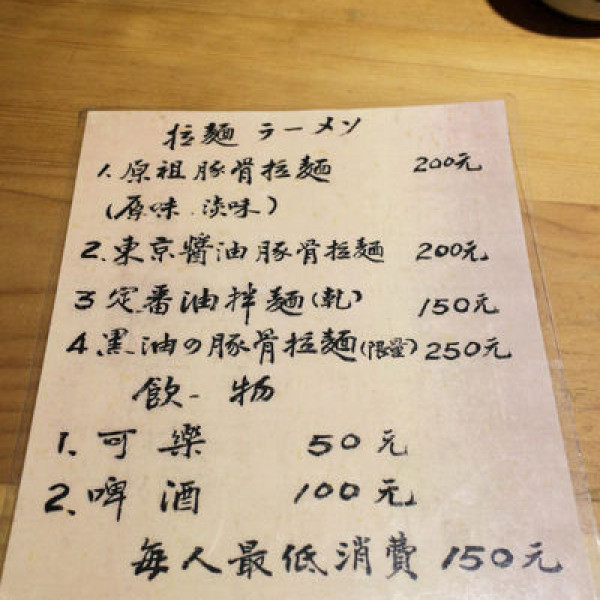 拉麵 ラーメン
1.原祖豚骨拉麵 200元
(原味.淡味)
2.東京醬油豚骨拉麵 200元
3 定番油拌麵(乾) 150元
4.黑油の豚骨拉麵(限量) 250元
飲-物
1.可樂 50元
2.啤酒 100元
每人最低消費 150元